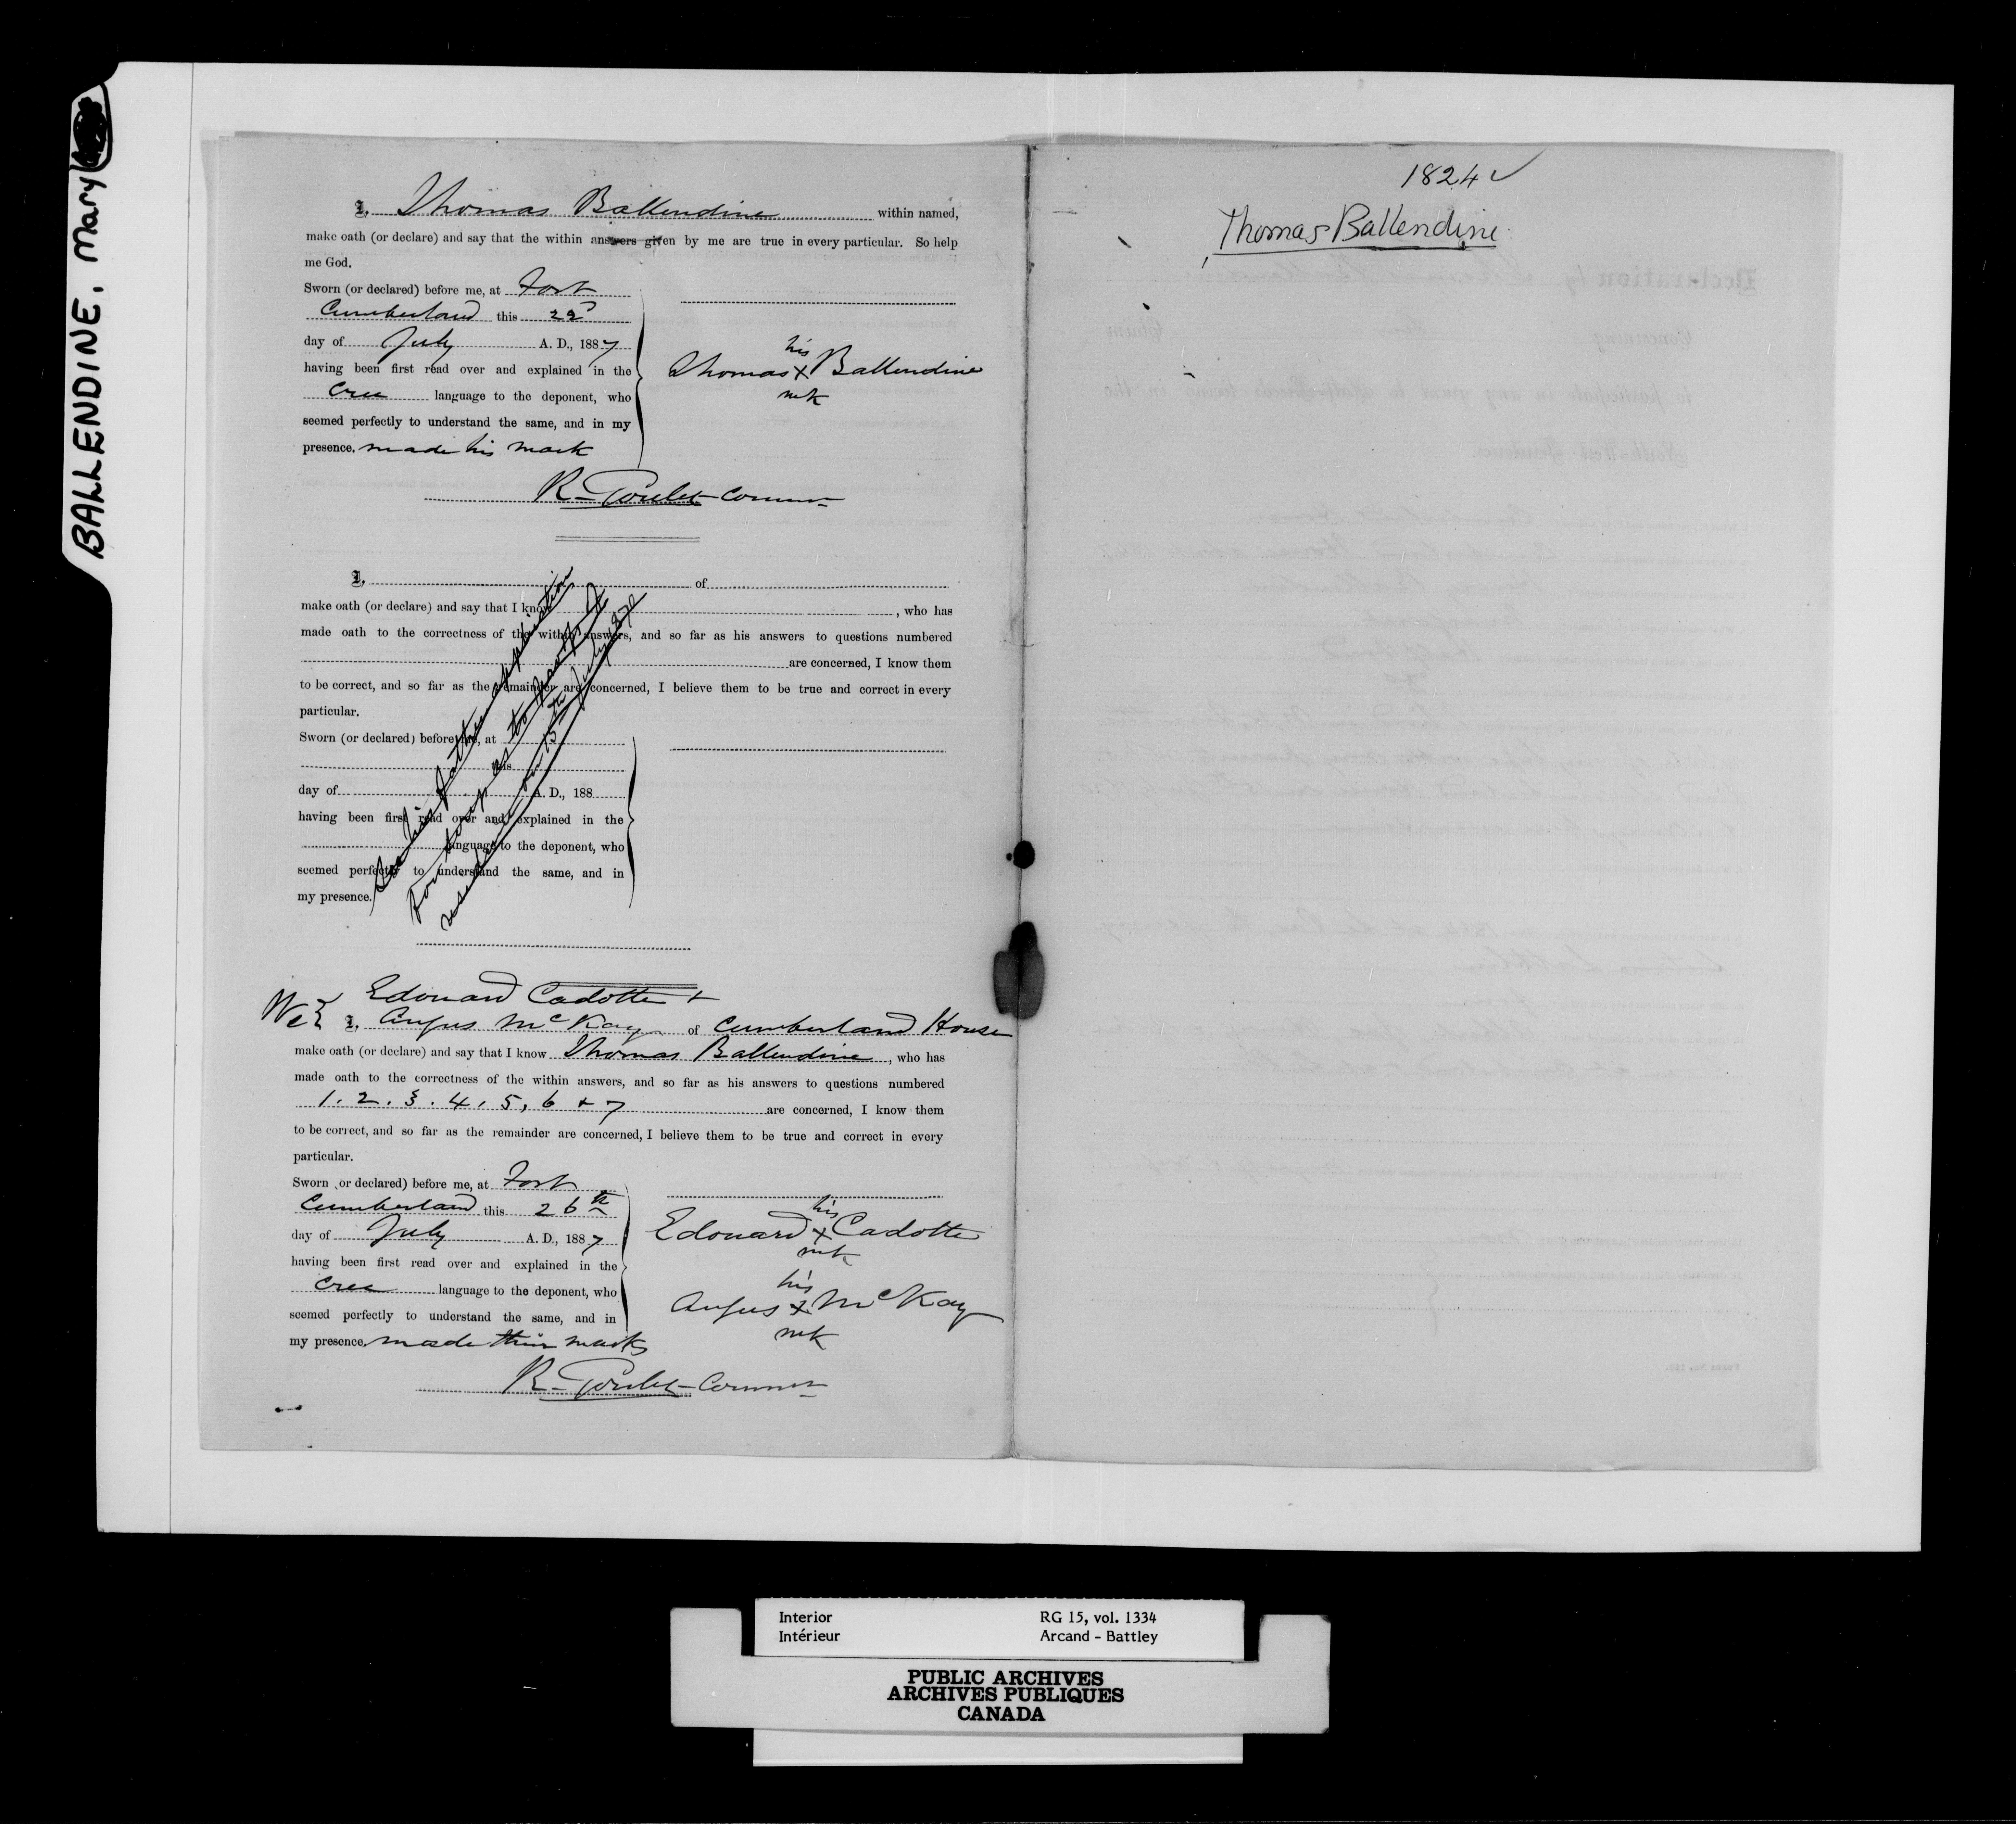 BALLENDINE, Mary
I, Thomas Ballendine within named,
make oath (or declare) and say that the within answers given by me are true in every particular. So help
me God.
Sworn (or declared) before me, at Fort
Cumberland this 22d
day of July A. D., 1887
having been first read over and explained in the
Cree language to the deponent, who
seemed perfectly to understand the same, and in my
presence, made his mark
his
Thomas x Ballendine
mk
R. Goulet Commr
I, of
make oath (or declare) and say that I know , who has
made oath to the correctness of the within answers, and so far as his answers to questions numbered
are concerned, I know them
to be correct, and so far as the remainder are concerned, I believe them to be true and correct in every
particular.
Sworn (or declared) before me, at
this
day of A. D., 188
having been first read over and explained in the
language to the deponent, who
seemed perfectly to understand the same, and in
my presence.
See his father's application
for proof as to
residence on 15th July 1870
Edouard Cadotte +
We I, Angus McKay of Cumberland House
make oath (or declare) and say that I know Thomas Ballendine, who has
made oath to the correctness of the within answers, and so far as his answers to questions numbered
1. 2. 3. 4, 5, 6 + 7 are concerned, I know them
to be correct, and so far as the remainder are concerned, I believe them to be true and correct in every
particular.
Sworn (or declared) before me, at Fort
Cumberland this 26th
day of July A. D., 1887
having been first read over and explained in the
Cree language to the deponent, who
seemed perfectly to understand the same, and in
my presence, made their marks
his
Edouard x Cadotte
mk
his
Angus x McKay
mk
R. Goulet Commr
1824 ✓
Thomas Ballendine
Interior RG 15, vol. 1334
Intérieur Arcand - Battley
PUBLIC ARCHIVES
ARCHIVES PUBLIQUES
CANADA